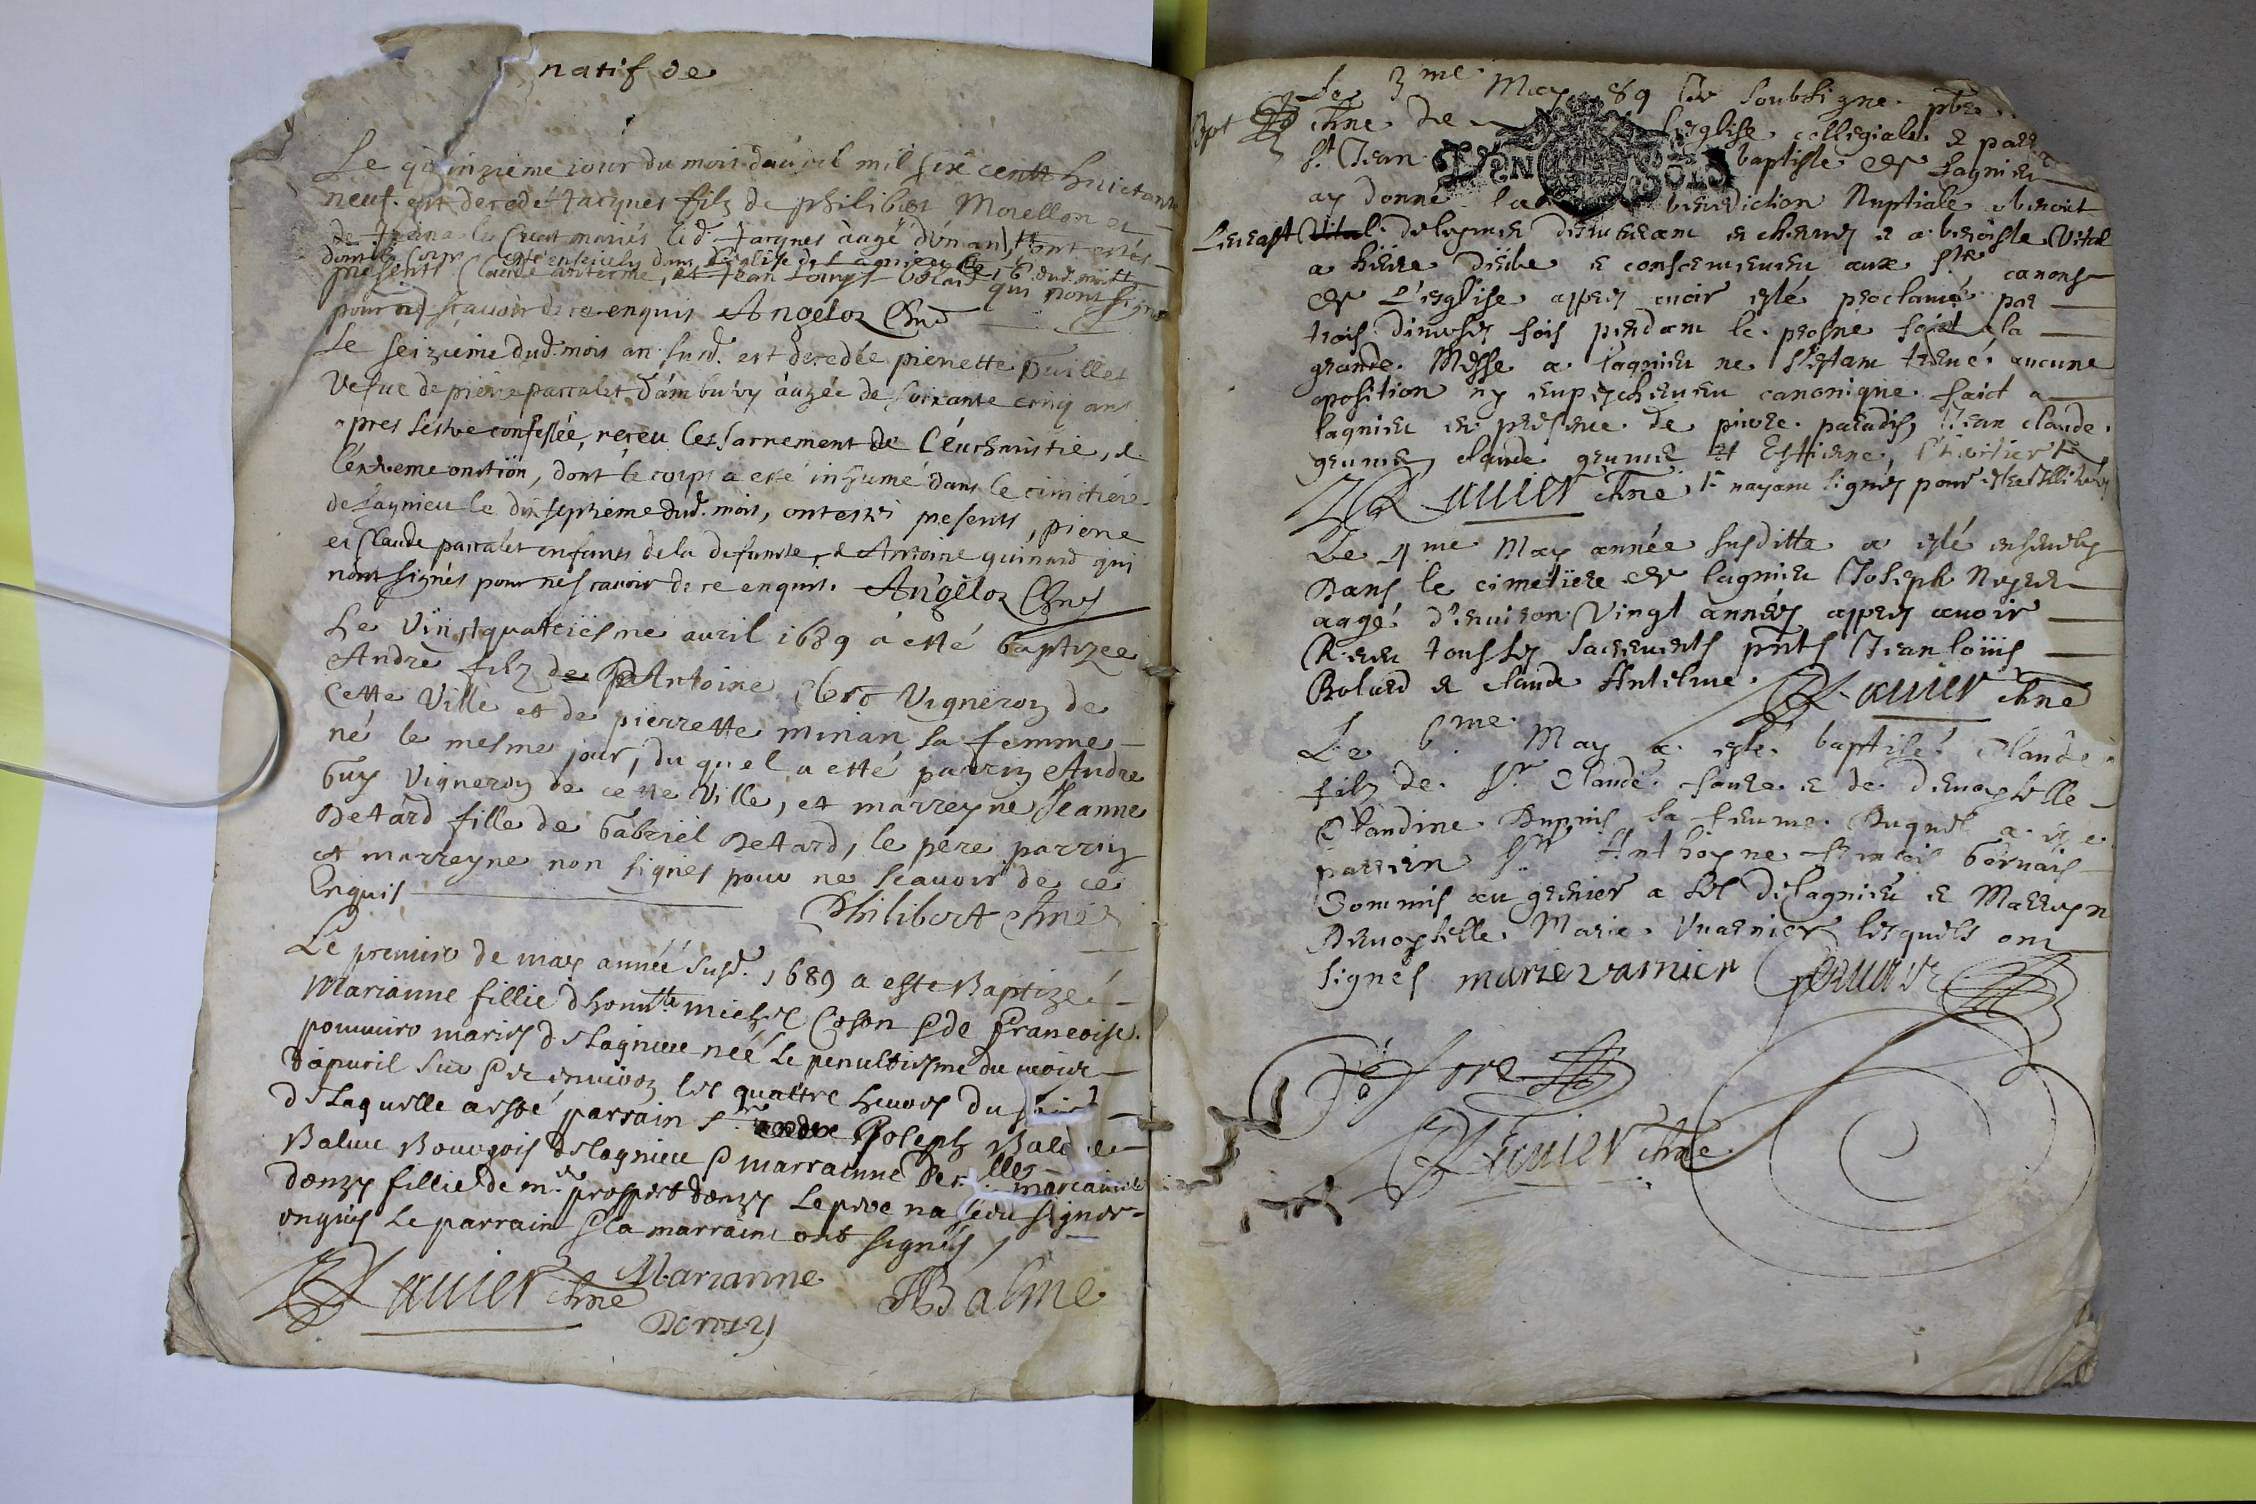 natif de
Le quinzieme iour du mois d'auril mil six centt huictante
neuf. est decedé Jacques filz de philibert Morellon et
de mariés le d. Jacques àagé d'un an,
dont le corps esté enseuely dans l'eglise de Lagnieu le 16 dud. mois
presents Claude anterme, et Jean Louys Bolard qui n'ont signé
pour ne scauoir de ce enquis Angeloz Chne
Le seizieme dud. mois an susd. est decedée pierrette
Vefue de pierre parralet d'ambutry àagée de soixante cinq ans
apres s'estre confessée, receu les sacrement de L'eucharistie, &
l'extreme onction, dont le corps a esté inhumé dans le cimitiere
de Lagnieu le dix septieme dud. mois, ont estés presents, pierre
et Claude parralet enfants de la defuncte, & Antoine quinard qui
n'ont signés pour ne scauoir de ce enquis. Angeloz Chne
Le Vingtquatriesme auril 1689 à esté baptizee
André filz de Antoine Clero Vigneron de
cette Ville et de pierrette minan sa femme
né le mesme jour, du quel a esté parrin Andre
Guy Vigneron de cette Ville, et marreyne Jeanne
Detard fille de Gabriel Detard, le père parrin
et marreyne non signes pour ne scauoir de ce
Enquis
Philibert Chne
Le premier de may année susd. 1689 a este Baptizeé
Marianne fillie d'honn.te michel Coson & de Francoise
pommiere mariés de Lagnieu neé le penultiesme du mois
d'apuril sur les enuiron les quattre heures du soir
de Laquelle a esté parrain sr. Joseph Balme
Balme Bourgois de Lagnieu & marrainne dem.lle marianne
donzy fillie de m.re prosper donzy Le pere na sceu signer
enquis Le parrain & la marraine ont signés
Lauier Chne Marianne Balme
Donzy
Le 3me May 89 Je soubsigne pbre.
Bpt chne de l'esglise collegiale & parr
St Jean baptiste de Lagnieu
DEN SOLS
ay donné la benediction Nuptiale a benoit
de & a benoiste Vital
a hiere & consentement aux Stz canons
de L'esglise appres auoir esté proclamé par
trois diuerses fois pendant le prosne fait a la
grande Messe a lagnieu ne s'estant treuué aucune
oposition ny empeschement canonique faict a
lagnieu en presence de pierre paradis, Jean claude
grumet, claude grumet et Estienne
Lauier chne nayant signés pour estre illiterés
Le 4me May année susditte a esté enseuely
Dans le cimetiere de lagnieu Joseph
aagé d'enuiron Vingt années appres auoir
Receu tous les sacrements pnts Jean loüis
Bolard & claude Antelme. Lauier chne
Le 6me May a esté baptisé Claude
filz de Sr Claude faure & de demoyselle
Claudine Dupuis sa femme Duquel a été
parrein Sr Anthoyne francois Gervais
Commis au grenier a sel de lagnieu & Marreyn
Demoyselle Marie Vuarnier lesquels ont
signés marie varnier Geruais
fore
Lauier chne